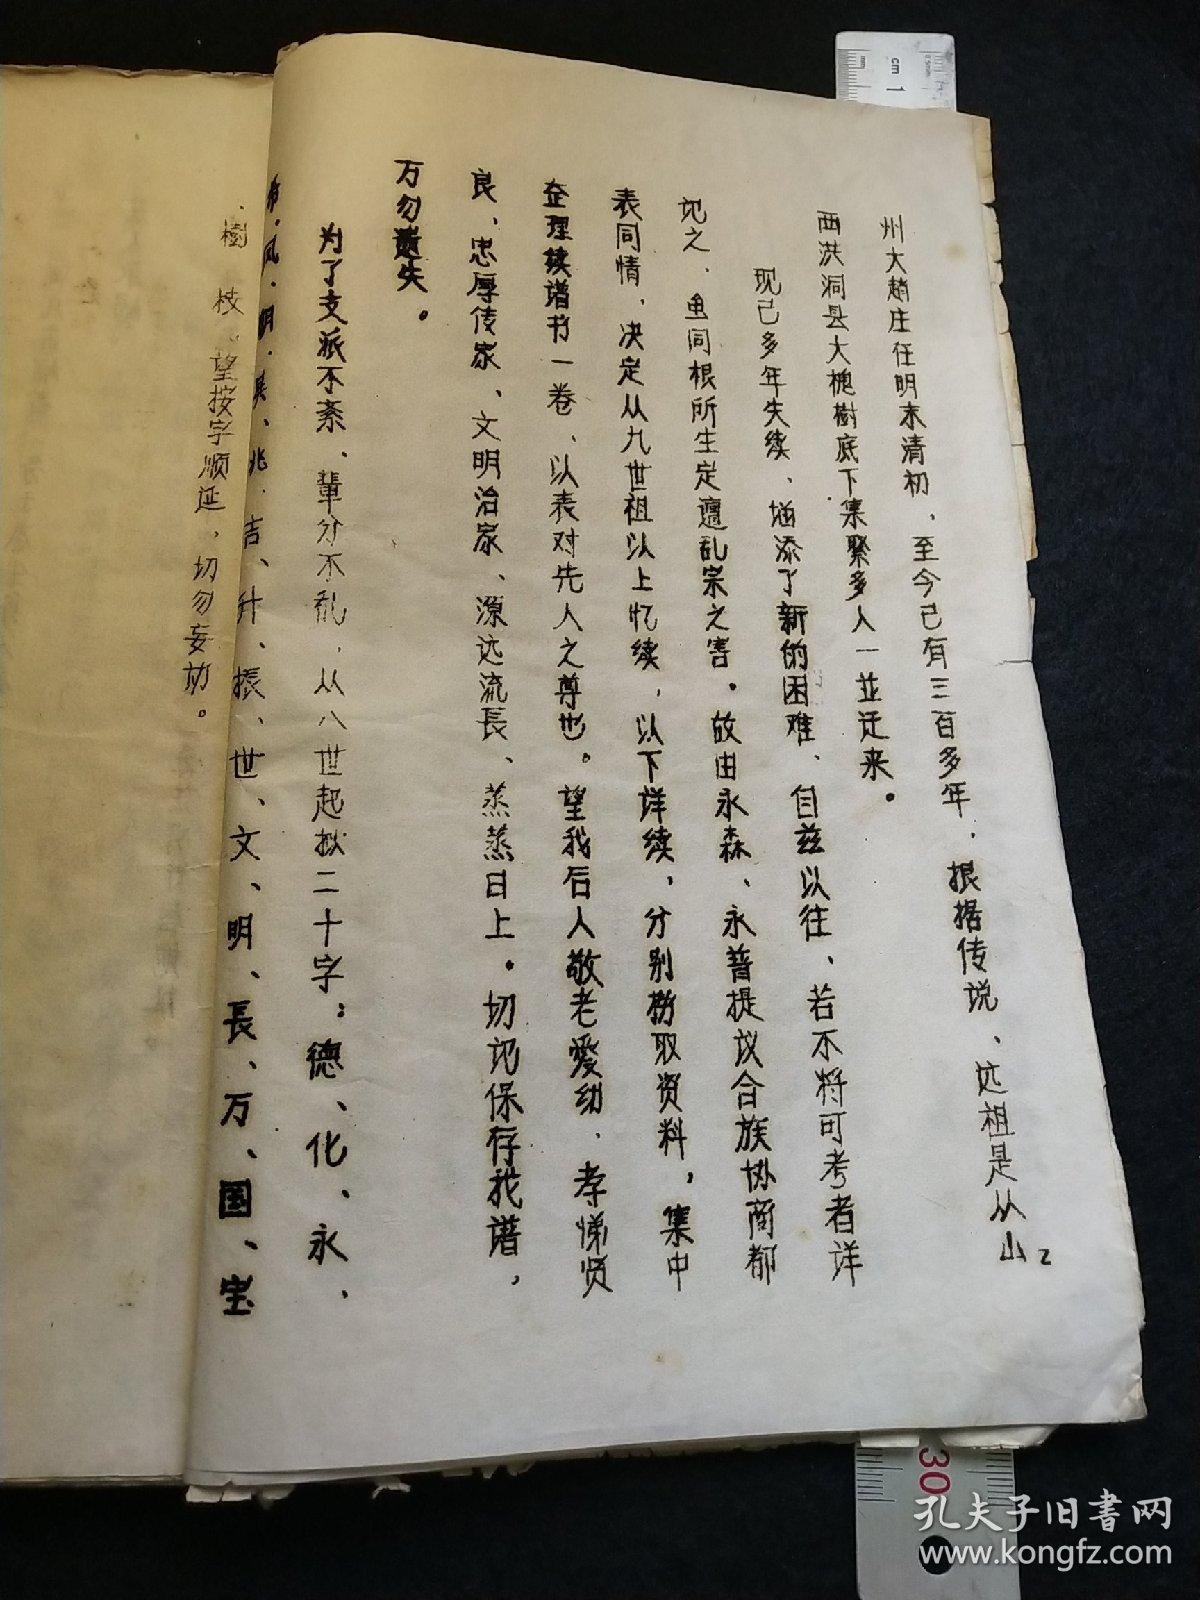 州大趙庄在明末清初，至今已有三百多年，根据传说、远祖是从山
西洪洞县大槐樹底下集聚多人一並迁来。
现已多年失续、增添了新的困难、自兹以往、若不将可考者详
记之、虽同根所生定遭乱宗之害。故由永森、永普提议合族协商都
表同情，决定从九世祖以上忆续，以下详续，分别抄取资料，集中
整理续谱书一卷、以表对先人之尊也。望我后人敬老爱幼、孝悌贤
良、忠厚传家、文明治家、源远流長、蒸蒸日上。切记保存我谱，
万勿遗失。
为了支派不紊、輩分不乱，从八世起拟二十字：德、化、永、
凤、明、其、兆、吉、升、振、世、文、明、長、万、国、宝
樹 枝，望按字顺延，切勿妄动。
2
cm 1
30
孔夫子旧書网
www.kongfz.com